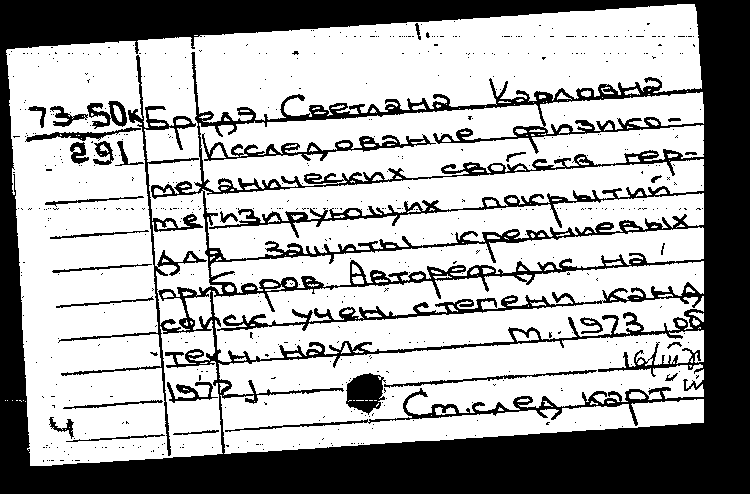 73-50к Бреда, Светлана Карловна
291 Исследование физико-
механических свойств гер-
метизирующих покрытий
для защиты кремниевых
приборов. Автореф. дис на
соиск. учен. степени канд
техн. наук. М., 1973 [об
1972].
16/III
Ст. след карт.
Ч